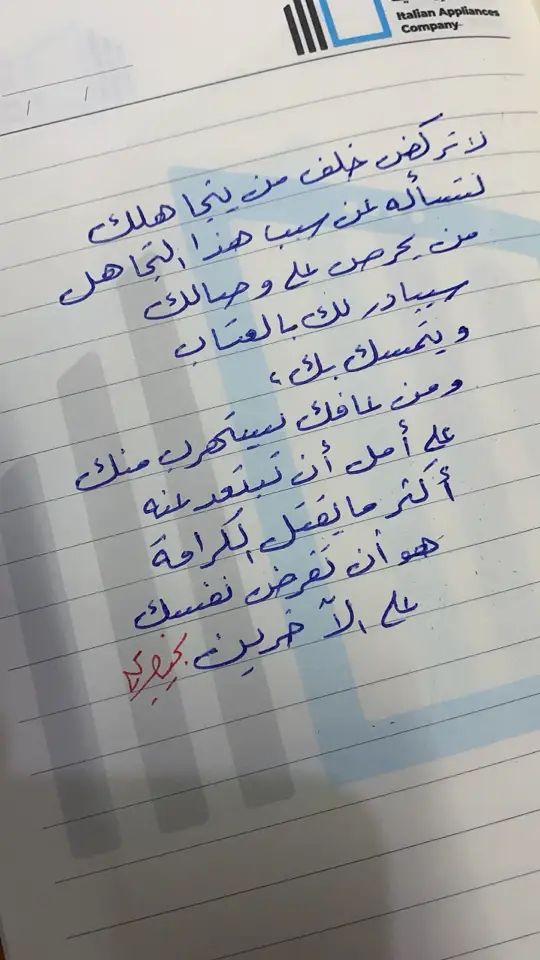 Italian Appliances
Company
/ /
لا تركض خلف من يتجاهلك
لتسأله عن سبب هذا التجاهل
من يحرص على وصالك
سيبادر لك بالعتاب
ويتمسك بك،
ومن عافك سيتهرب منك
على أمل أن تبتعد عنه
أكثر ما يقتل الكرامة
هو أن تفرض نفسك
على الآخرين